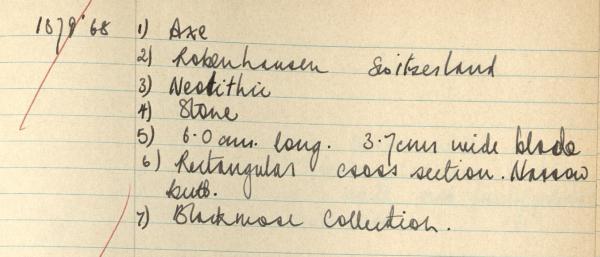 1879'68 1) Axe
2) Robenhausen Switzerland
3) Neolithic
4) Stone
5) 6.0 cm. long. 3.7cms wide blade
6) Rectangular cross section. Narrow
butt.
7) Blackmore Collection.